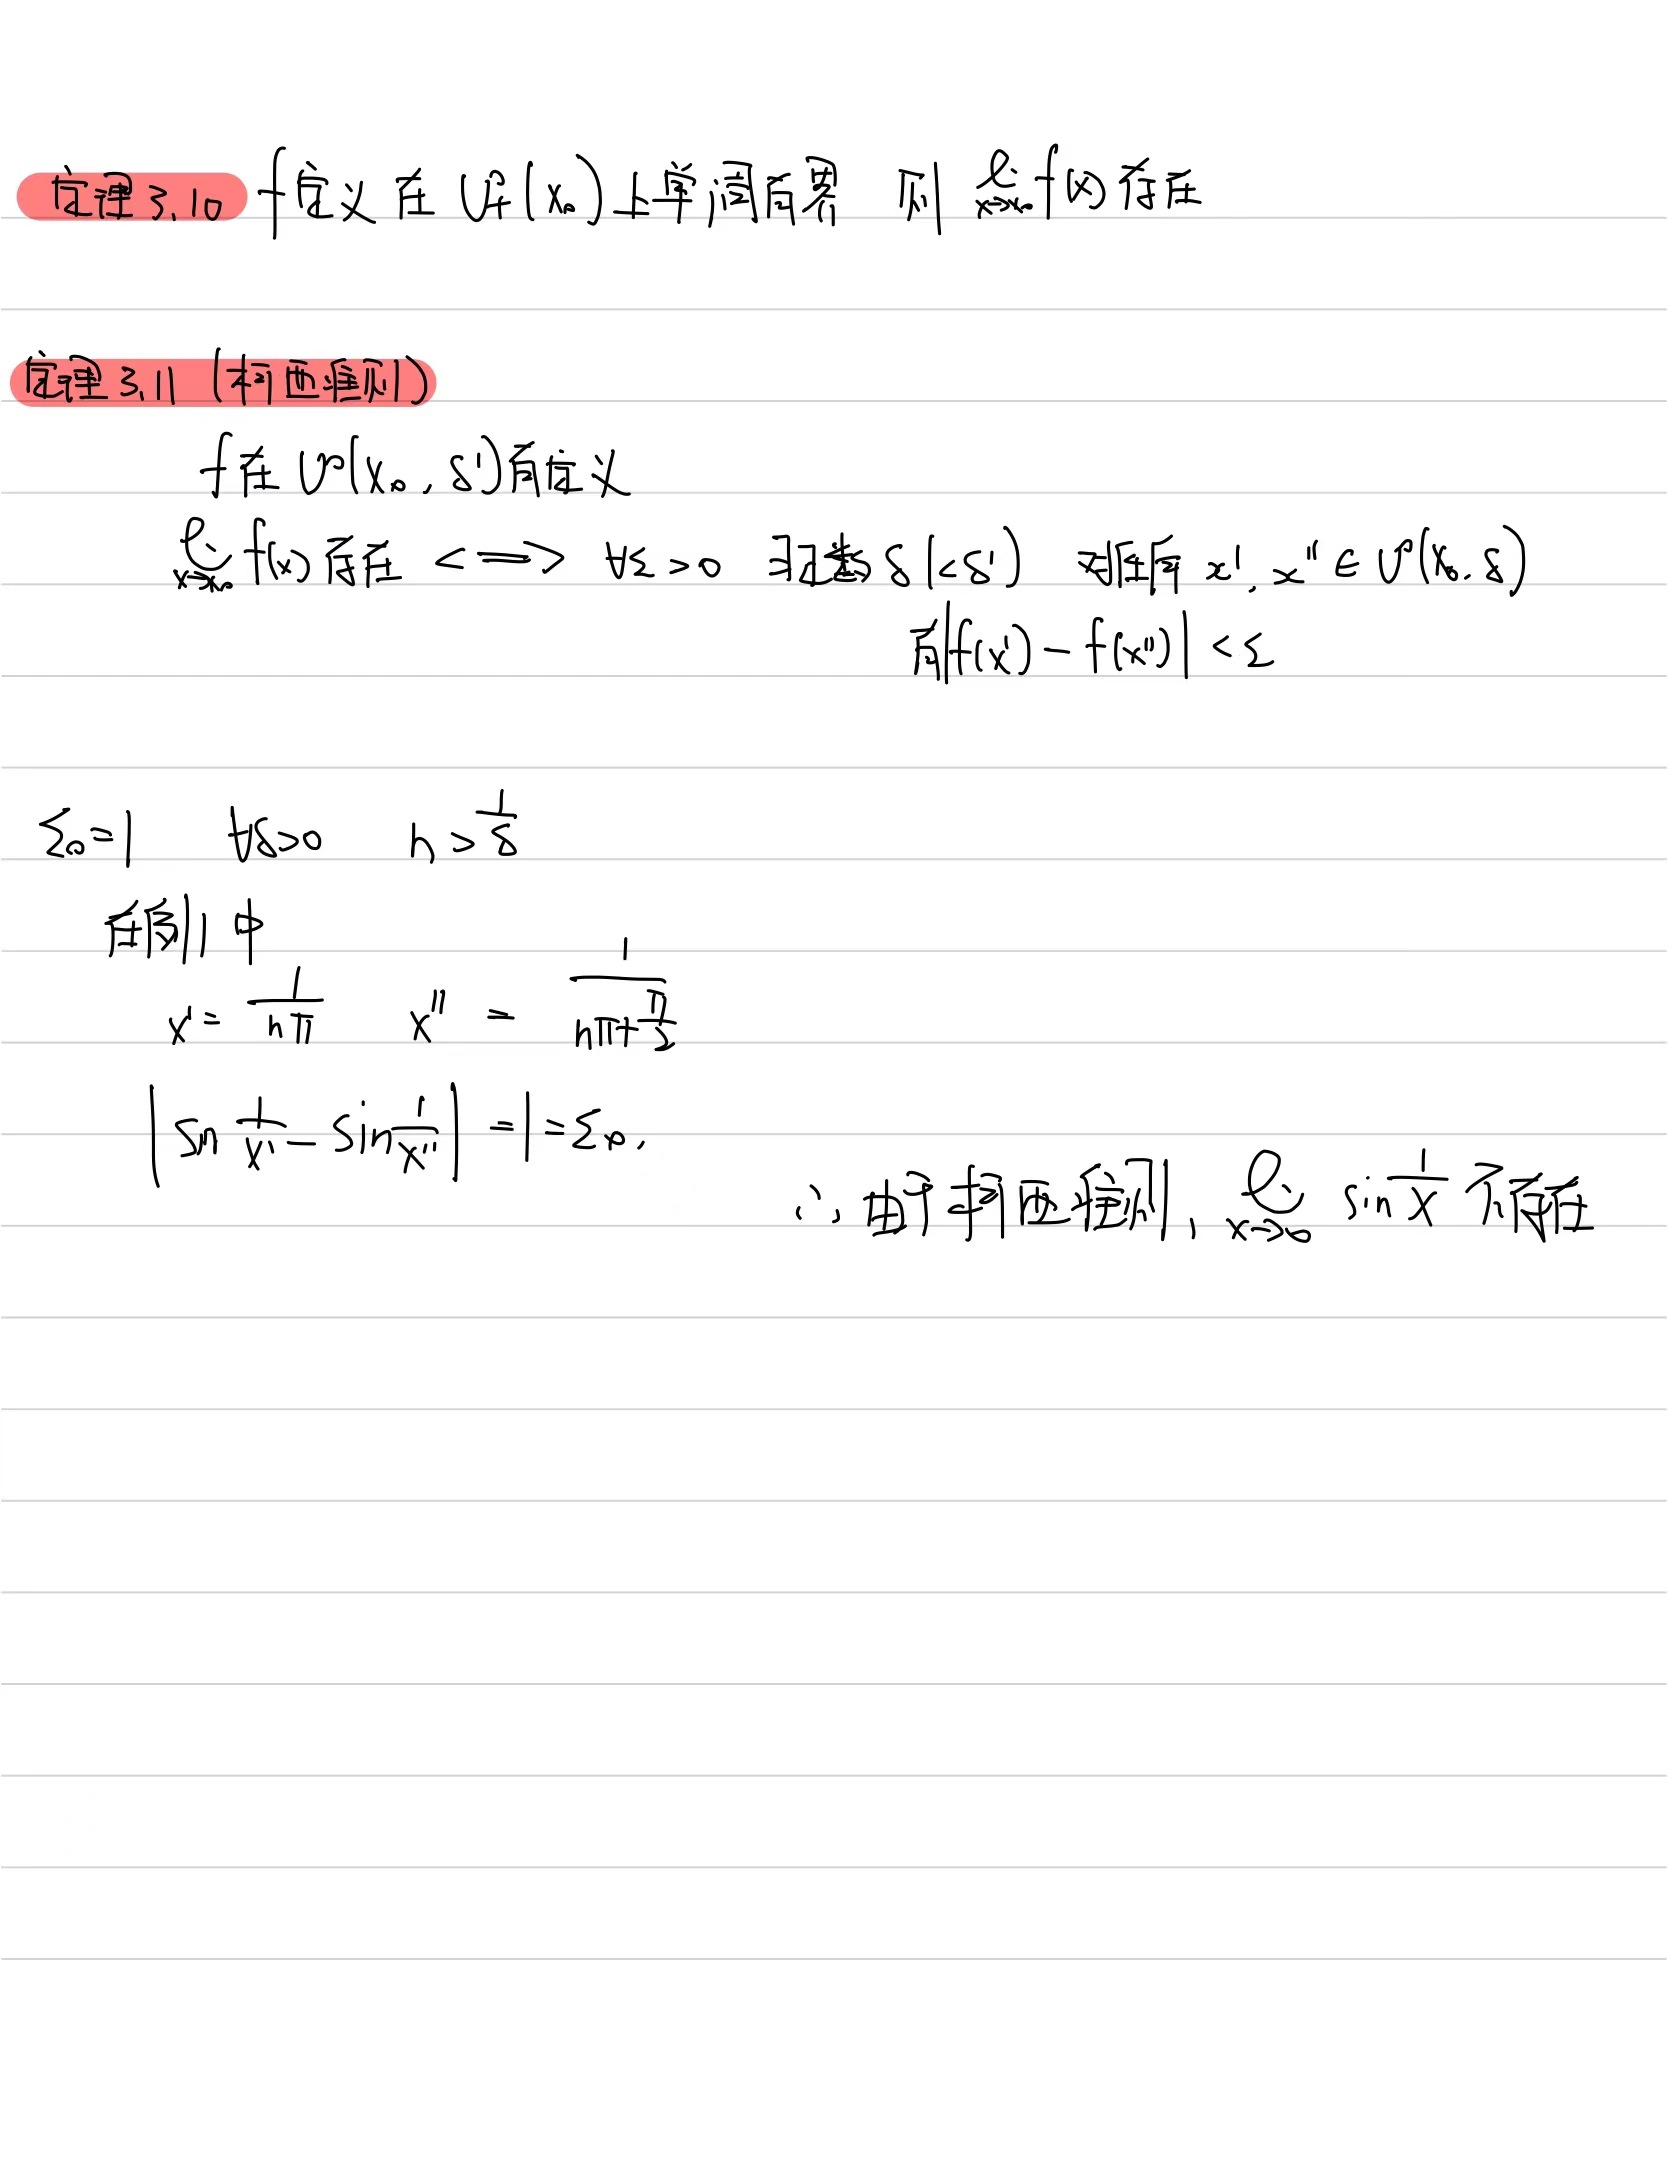 定理3.10 f定义在 U₊°(x₀)上单调有界 则 lim x→x₀ f(x)存在
定理3.11 (柯西准则)
f在U°(x₀, δ')有定义
lim x→x₀ f(x)存在 <=> ∀ε>0 ∃正数δ(<δ') 对任何 x', x''∈U°(x₀, δ)
有|f(x')-f(x'')|<ε
ε₀=1 ∀δ>0 n>1/δ
在例1中
x'=1/nπ x''=1/(nπ+π/2)
|sin 1/x' - sin 1/x''|=1=ε₀.
∴由于柯西准则, lim x→0 sin 1/x 不存在